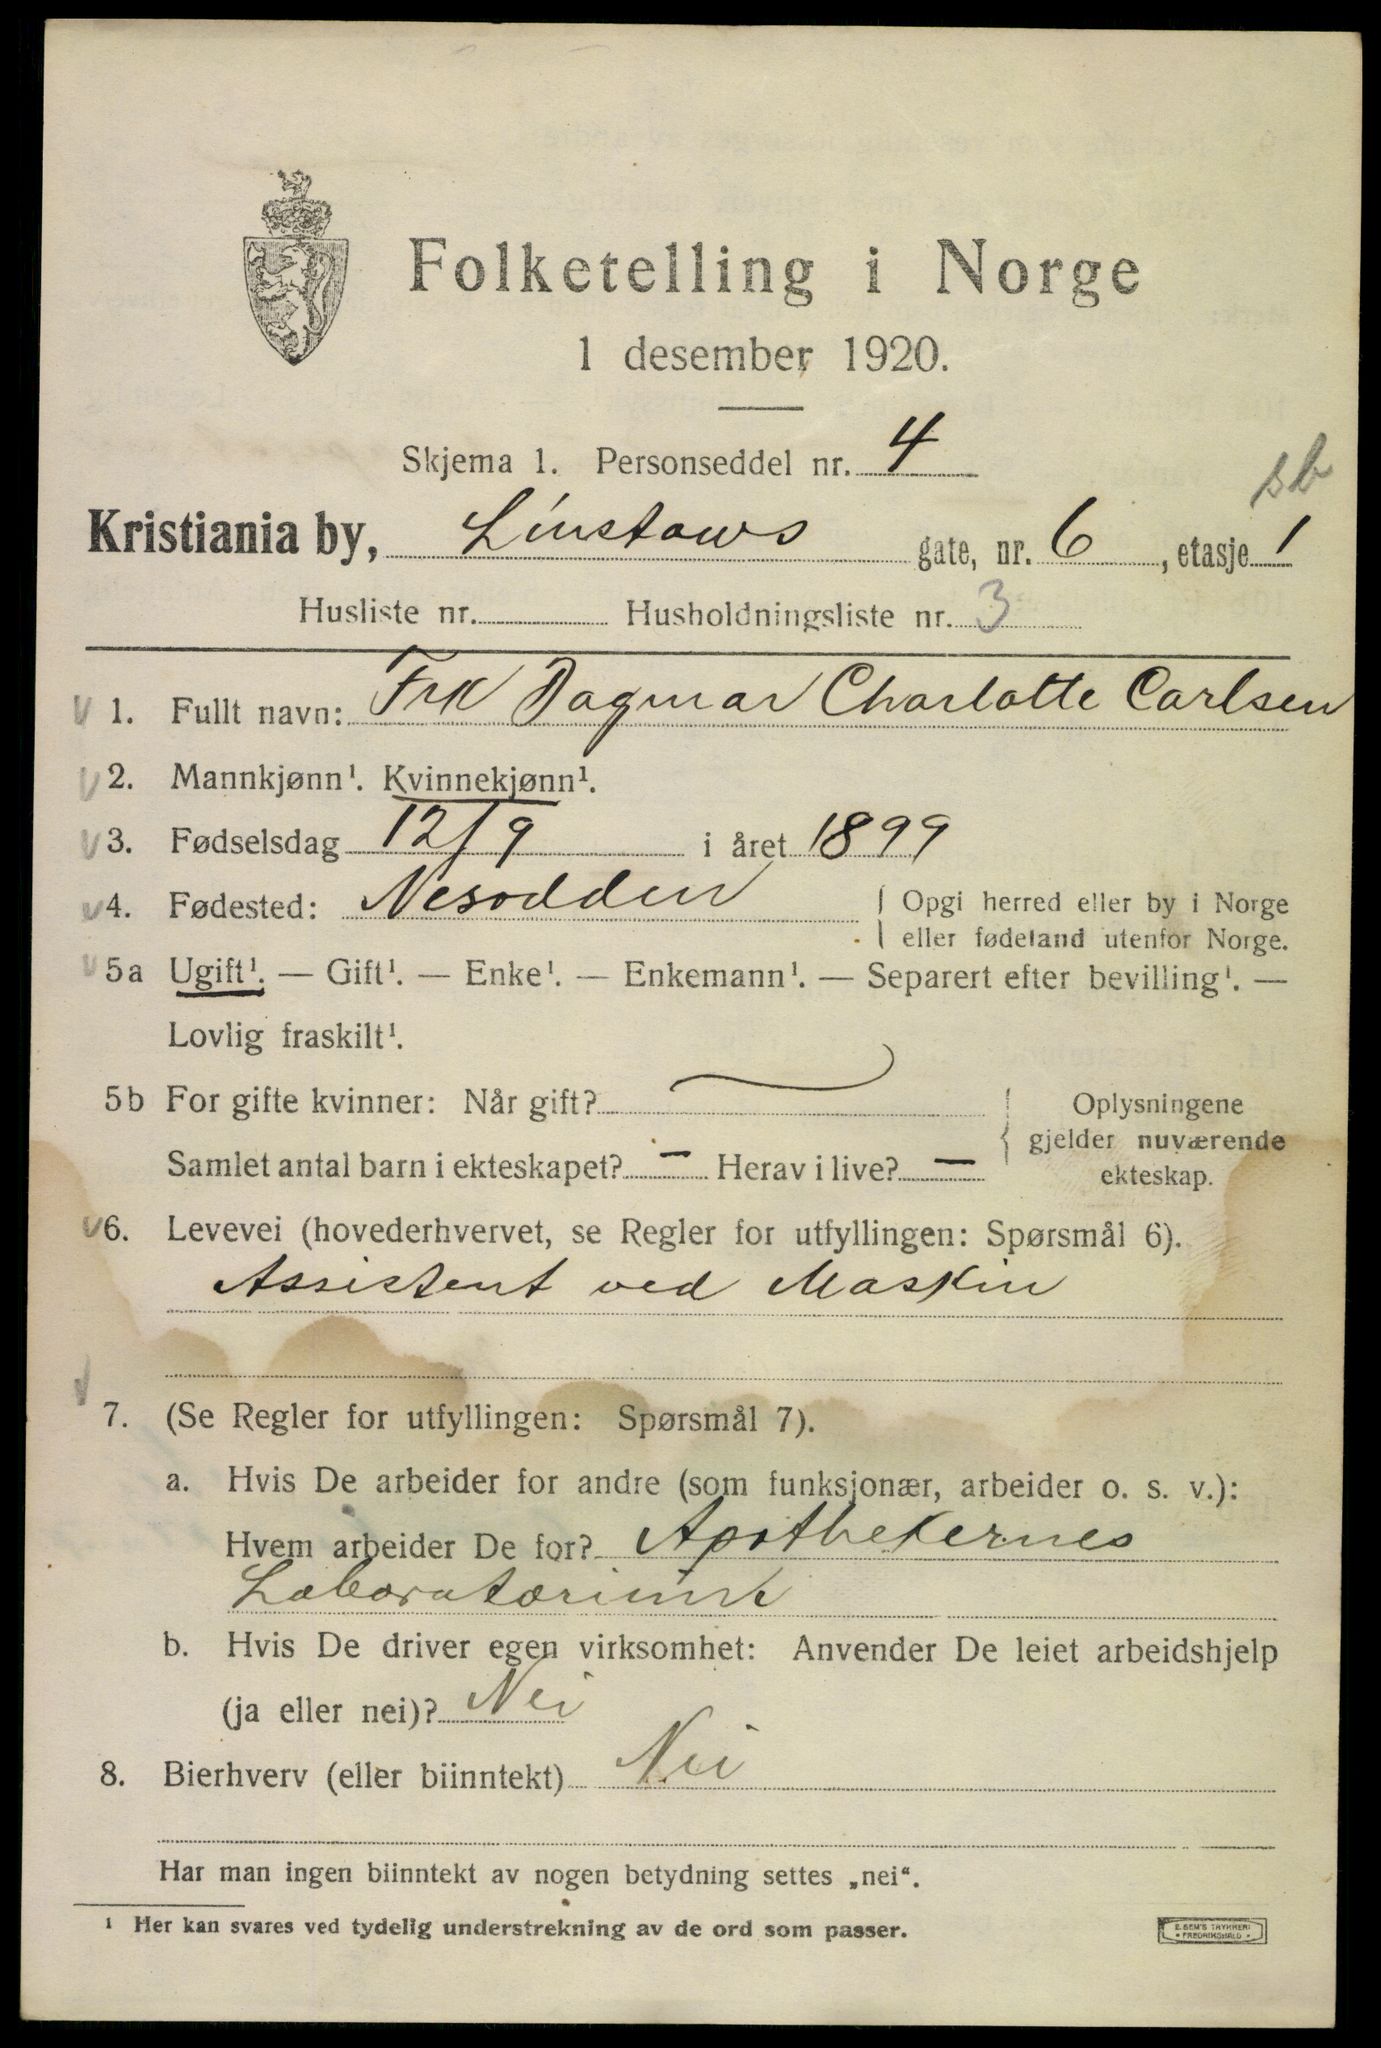 Folketelling i Norge
1 desember 1920.
Skjema 1. Personseddel nr. 4
sb
Kristiania by, Linstows gate, nr. 6, etasje 1
Husliste nr. Husholdningsliste nr. 3
v 1. Fullt navn: Frk Dagmar Charlotte Carlsen
v 2. Mannkjønn¹. Kvinnekjønn¹.
v 3. Fødselsdag 12/9 i året 1899
v 4. Fødested: Nesodden { Opgi herred eller by i Norge
eller fødeland utenfor Norge.
v 5a Ugift¹. — Gift¹. — Enke¹. — Enkemann¹. — Separert efter bevilling¹. —
Lovlig fraskilt¹.
5b For gifte kvinner: Når gift?
Samlet antal barn i ekteskapet? — Herav i live? —
{ Oplysningene
gjelder nuværende
ekteskap.
v 6. Levevei (hovederhvervet, se Regler for utfyllingen: Spørsmål 6).
Assistent ved Maskin
v
7. (Se Regler for utfyllingen: Spørsmål 7).
a. Hvis De arbeider for andre (som funksjonær, arbeider o. s. v.):
Hvem arbeider De for? Apothekernes
Laboratorium
b. Hvis De driver egen virksomhet: Anvender De leiet arbeidshjelp
(ja eller nei)? Nei
8. Bierhverv (eller biinntekt) Nei
Har man ingen biinntekt av nogen betydning settes „nei“.
¹ Her kan svares ved tydelig understrekning av de ord som passer.
E. SEM'S TRYKKERI
• FREDRIKSHALD •